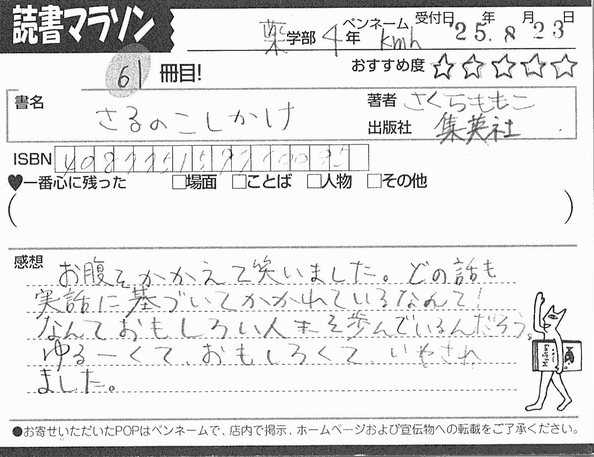 読書マラソン
薬学部 4年 ペンネーム kmh 受付日 '25年 8月23日
61冊目! おすすめ度 ☆☆☆☆☆
書名 さるのこしかけ 著者 さくらももこ
出版社 集英社
ISBN
♥一番心に残った □場面 □ことば □人物 □その他
( )
感想
お腹をかかえて笑いました。どの話も
実話に基づいてかかれているなんて!
なんておもしろい人生を歩んでいるんだろう。
ゆるーくて、おもしろくて いやされ
ました。
●お寄せいただいたPOPはペンネームで、店内で掲示、ホームページおよび宣伝物への転載をご了承ください。